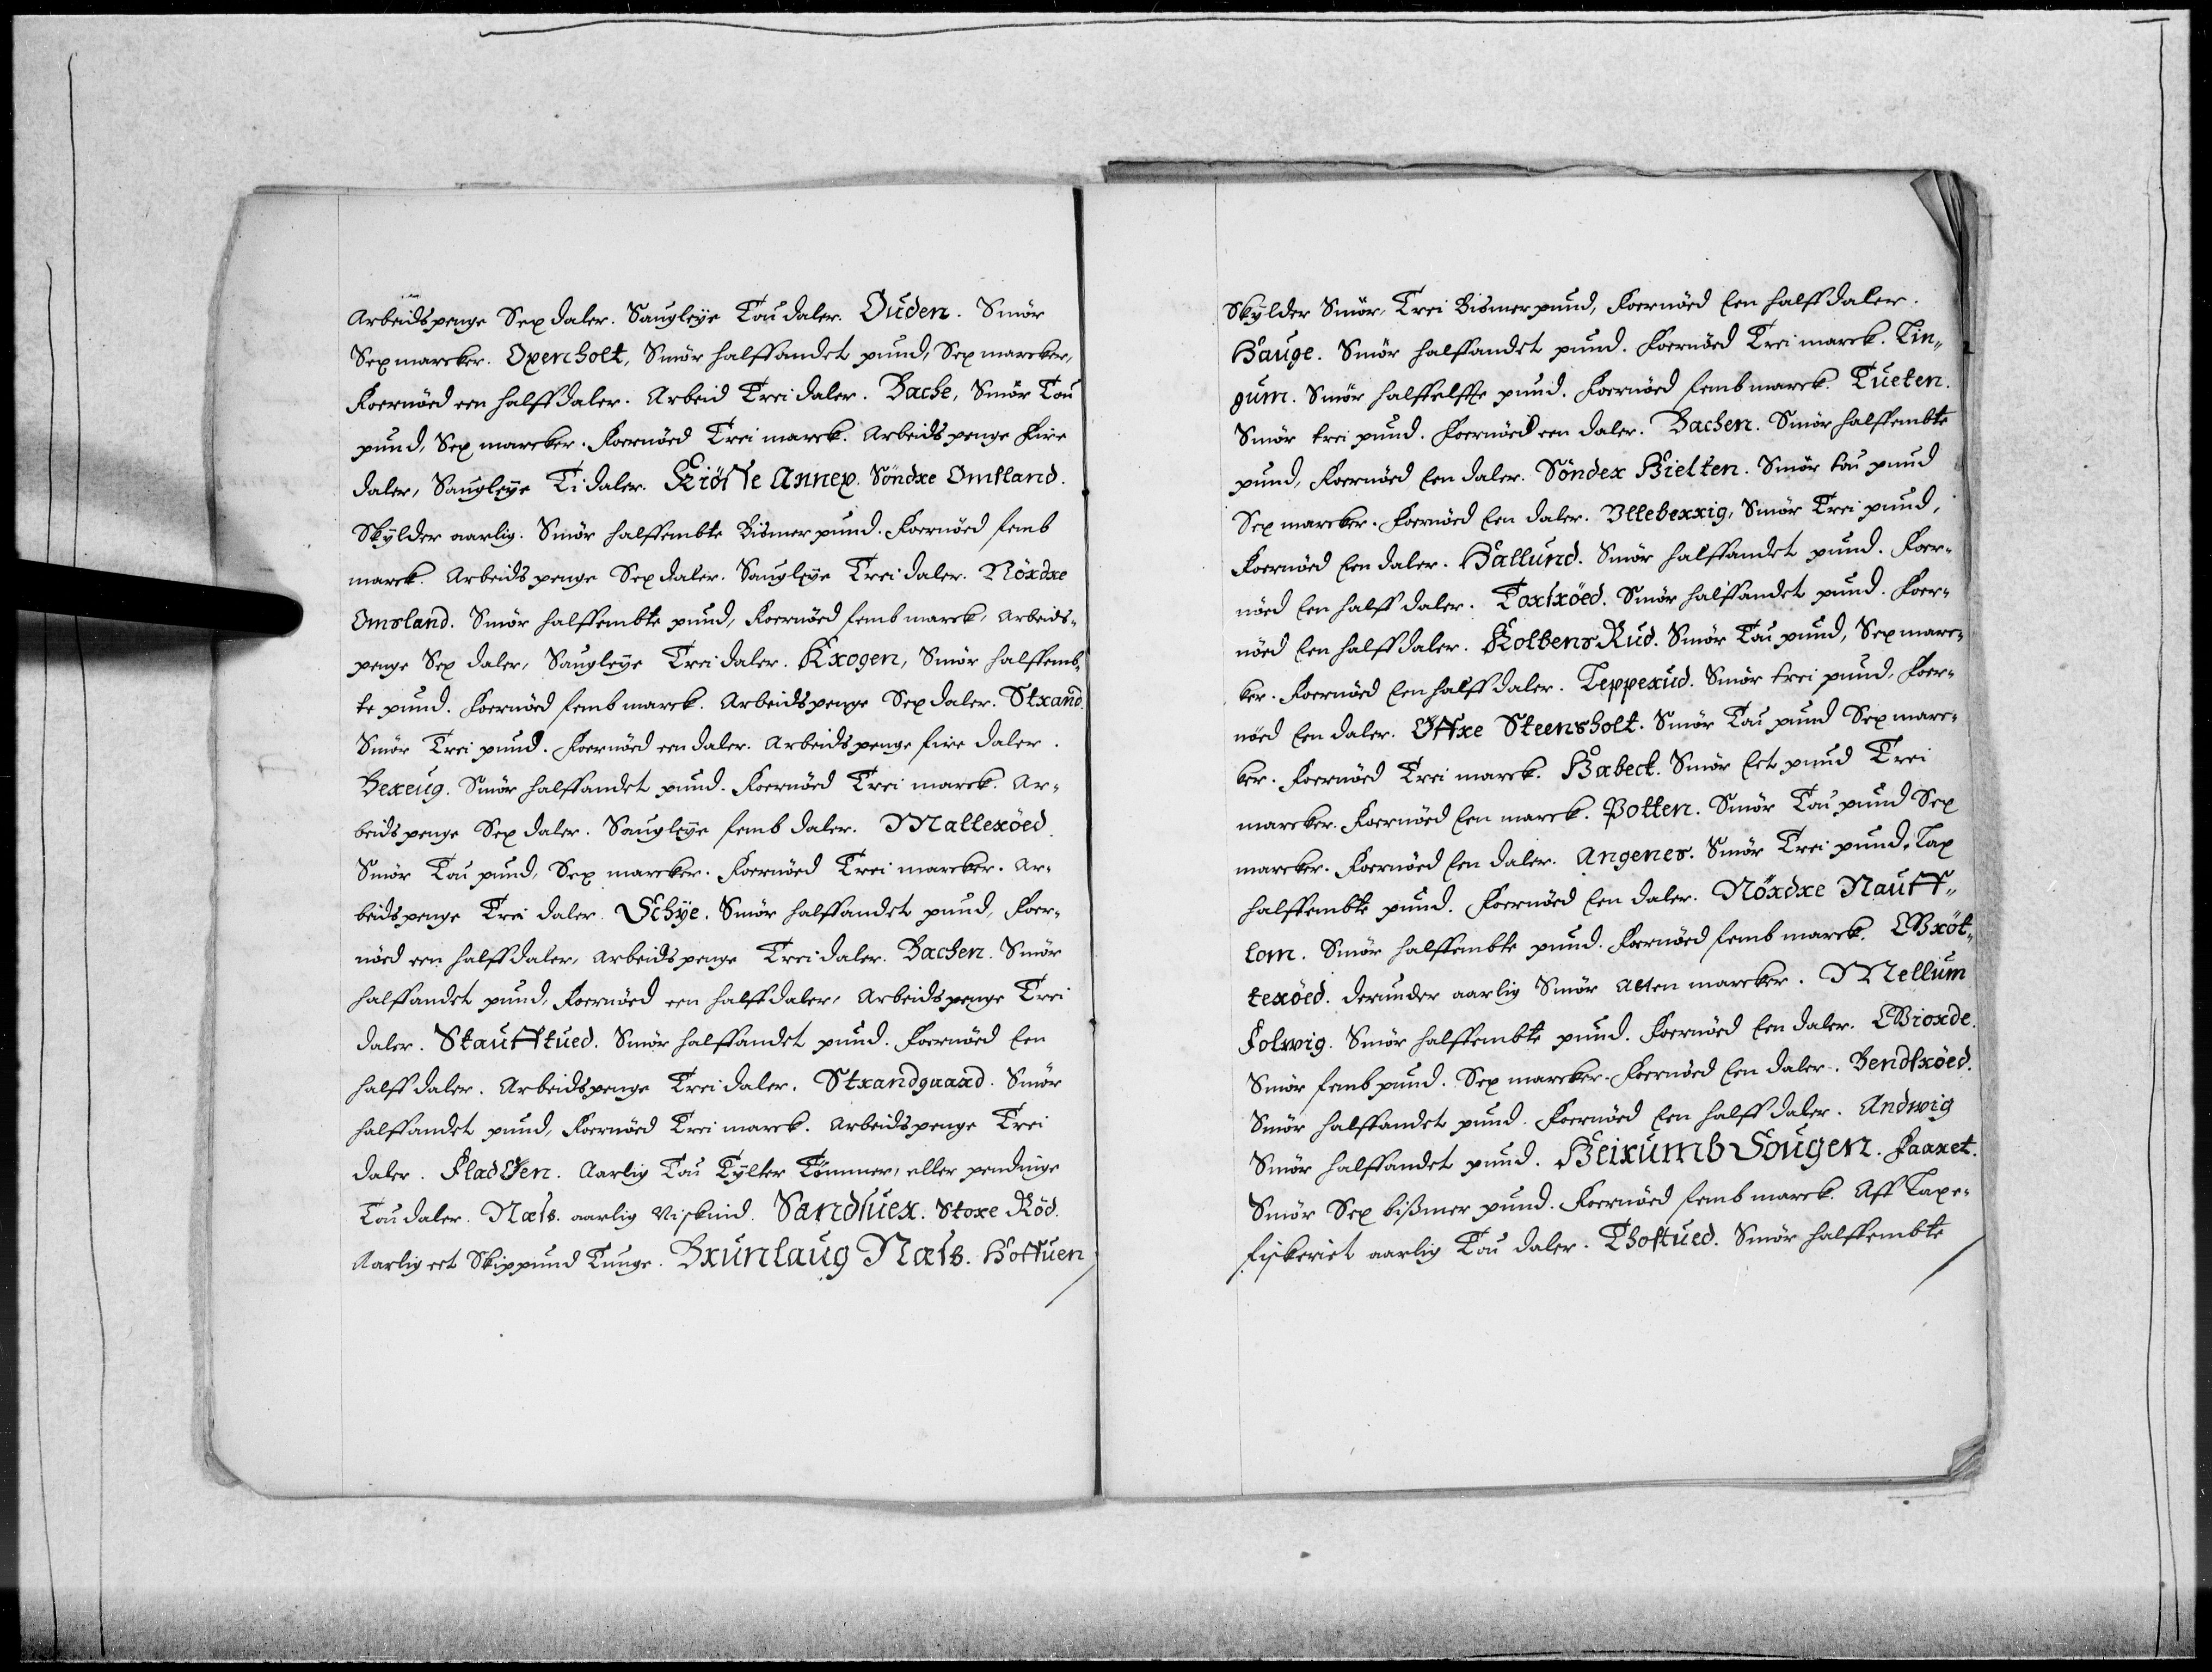 Arbeidspenge Sex daler. Saugleÿe Tou daler. Ouden. Smör
Sex marcker. Oxenholt, Smör halffandet pund, Sex marcker,
Foernöed een halff daler. Arbeid Trei daler. Bache, Smör Tou
pund, Sex marcker. Foernöed Trei marck. Arbeids penge Fire
daler, Saugleÿe Ti daler. Kiöße Annex. Söndre Omsland.
Skÿlder aarlig. Smör halffembte Bismer pund. Foernöed femb
marck. Arbeids penge Sex daler. Saugleÿe Trei daler. Nördre
Omsland. Smör halffembte pund, Foernöed femb marck, Arbeids-
penge Sex daler, Saugleÿe Trei daler. Krogen, Smör halffemb-
te pund. Foernöed femb marck. Arbeidspenge Sex daler. Strand.
Smör Trei pund. Foernöed een daler. Arbeidspenge fire daler.
Bereug. Smör halffandet pund. Foernöed Trei marck. Ar-
beids penge Sex daler. Saugleÿe femb daler. Malleröed.
Smör Tou pund, Sex marcker. Foernöed Trei marcker. Ar-
beidspenge Trei daler. Schÿe. Smör halffandet pund, Foer-
nöed een halff daler, Arbeidspenge Trei daler. Bachen. Smör
halffandet pund, Foernöed een halff daler, Arbeidspenge Trei
daler. Staufftued. Smör halffandet pund. Foernöed Een
halff daler. Arbeidspenge Trei daler. Strandgaard. Smör
halffandet pund, Foernöed Trei marck. Arbeidspenge Trei
daler. Flad Øen. Aarlig Tou Tÿlter Tömmer, eller pendinge
Tou daler. Næss. aarlig Niskind. Sandsuer. Store Röd.
Aarlig eet Skippund Tunge. Brunlaug Næss. Hoffuen
Skÿlder Smör, Trei Bismerpund, Foernöed Een halff daler.
Hauge. Smör halffandet pund. Foernöed Trei marck. Lin-
gum. Smör halffelffte pund. Foernöed femb marck. Tueten.
Smör trei pund. Foernöed een daler. Bachen. Smör halffembte
pund, Foernöed Een daler. Sönder Hielten. Smör tou pund
Sex marcker. Foernöed Een daler. Ulleberrig, Smör Trei pund,
Foernöed Een daler. Hallund. Smör halffandet pund. Foer-
nöed Een halff daler. Torsröed. Smör halffandet pund. Foer-
nöed Een halff daler. Kolbens Rud. Smör Tou pund, Sex marc-
ker. Foernöed Een halff daler. Lepperud. Smör trei pund, Foer-
nöed Een daler. Øffre Steensholt. Smör Tou pund Sex marc-
ker. Foernöed Trei marck. Barbeck. Smör Eet pund Trei
marcker. Foernöed Een marck. Potten. Smör Tou pund Sex
marcker. Foernöed Een daler. Angenes. Smör Trei pund, Lax
halffembte pund. Foernöed Een daler. Nördre Nauff-
lom. Smör halffembte pund. Foernöed femb marck. Bröt-
teröed. derunder aarlig Smör Atten marcker. Mellum
Folwig. Smör halffembte pund. Foernöed Een daler. Biorde.
Smör femb pund. Sex marcker. Foernöed Een daler. Bendsröed.
Smör halffandet pund. Foernöed Een halff daler. Andwig
Smör halffandet pund. Heirumb Sougen. Faaret.
Smör Sex bißmer pund. Foernöed femb marck. Aff Laxe-
fiskeriet aarlig Tou daler. Thoftued. Smör halffembte